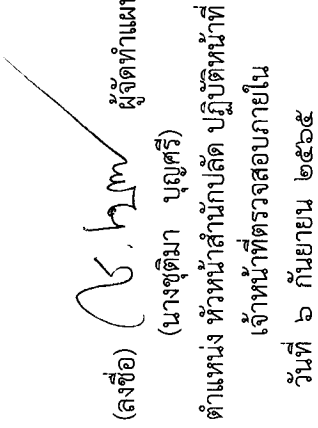 (ลงชื่อ) ผู้จัดทำแผน
(นางชุติมา บุญศรี)
ตำแหน่ง หัวหน้าสำนักปลัด ปฏิบัติหน้าที่
เจ้าหน้าที่ตรวจสอบภายใน
วันที่ ๖ กันยายน ๒๕๖๕